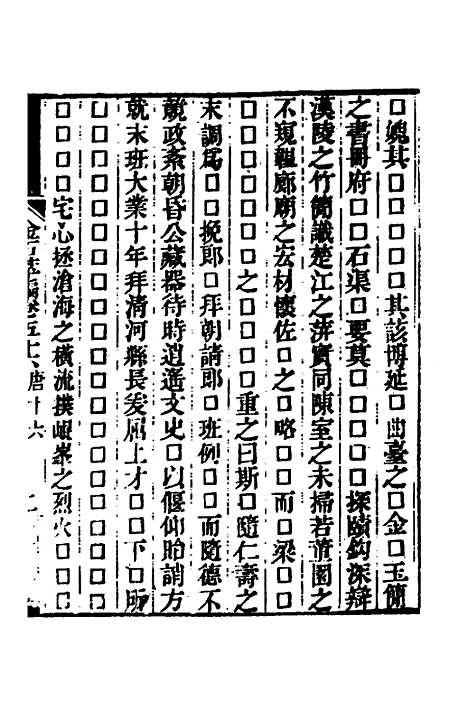 □媿其□□□□□其該博延□曲臺之□金□玉簡
之書冊府□□石渠□要莫□□□探賾鈎深辯
漢陵之竹簡識楚江之萍實同陳室之未掃若董園之
不窺韞廊廟之宏材懷佐□之□略□□而□梁□□
□□□□□□之□□□□□重之曰斯□隨仁壽之
末調爲□□挽郎□拜朝請郎□班例□□而隨德不
競政紊朝昏公藏器待時逍遙文史□以偃仰貽誚方
就末班大業十年拜清河縣長爰屈上才□□下□
□□□□□□□□□□□□□□□□□□□□
□□□□宅心拯滄海之橫流撲崐峯之烈火□□□□
金石萃編卷五十 唐十六